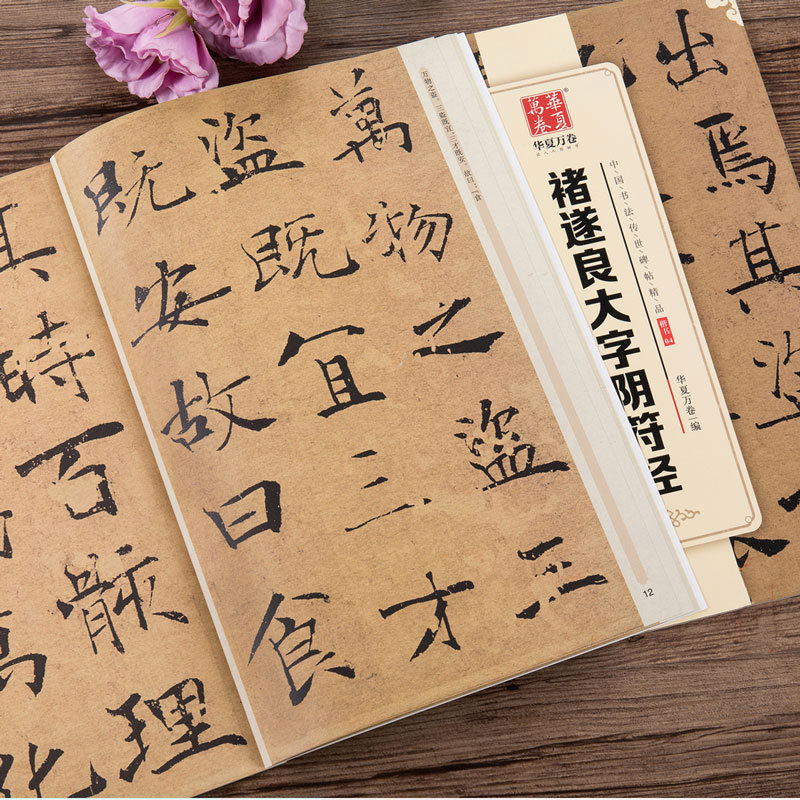 出焉其盜
華夏
萬卷
华夏万卷
中国书法传世碑帖精品
楷书 04
华夏万卷 编
褚遂良大字阴符经
万物之盗。三盗既宜,三才既安。故曰:“食
萬物之盜三
盜既宜三才
既安故曰食
12
其時百骸理
萬化